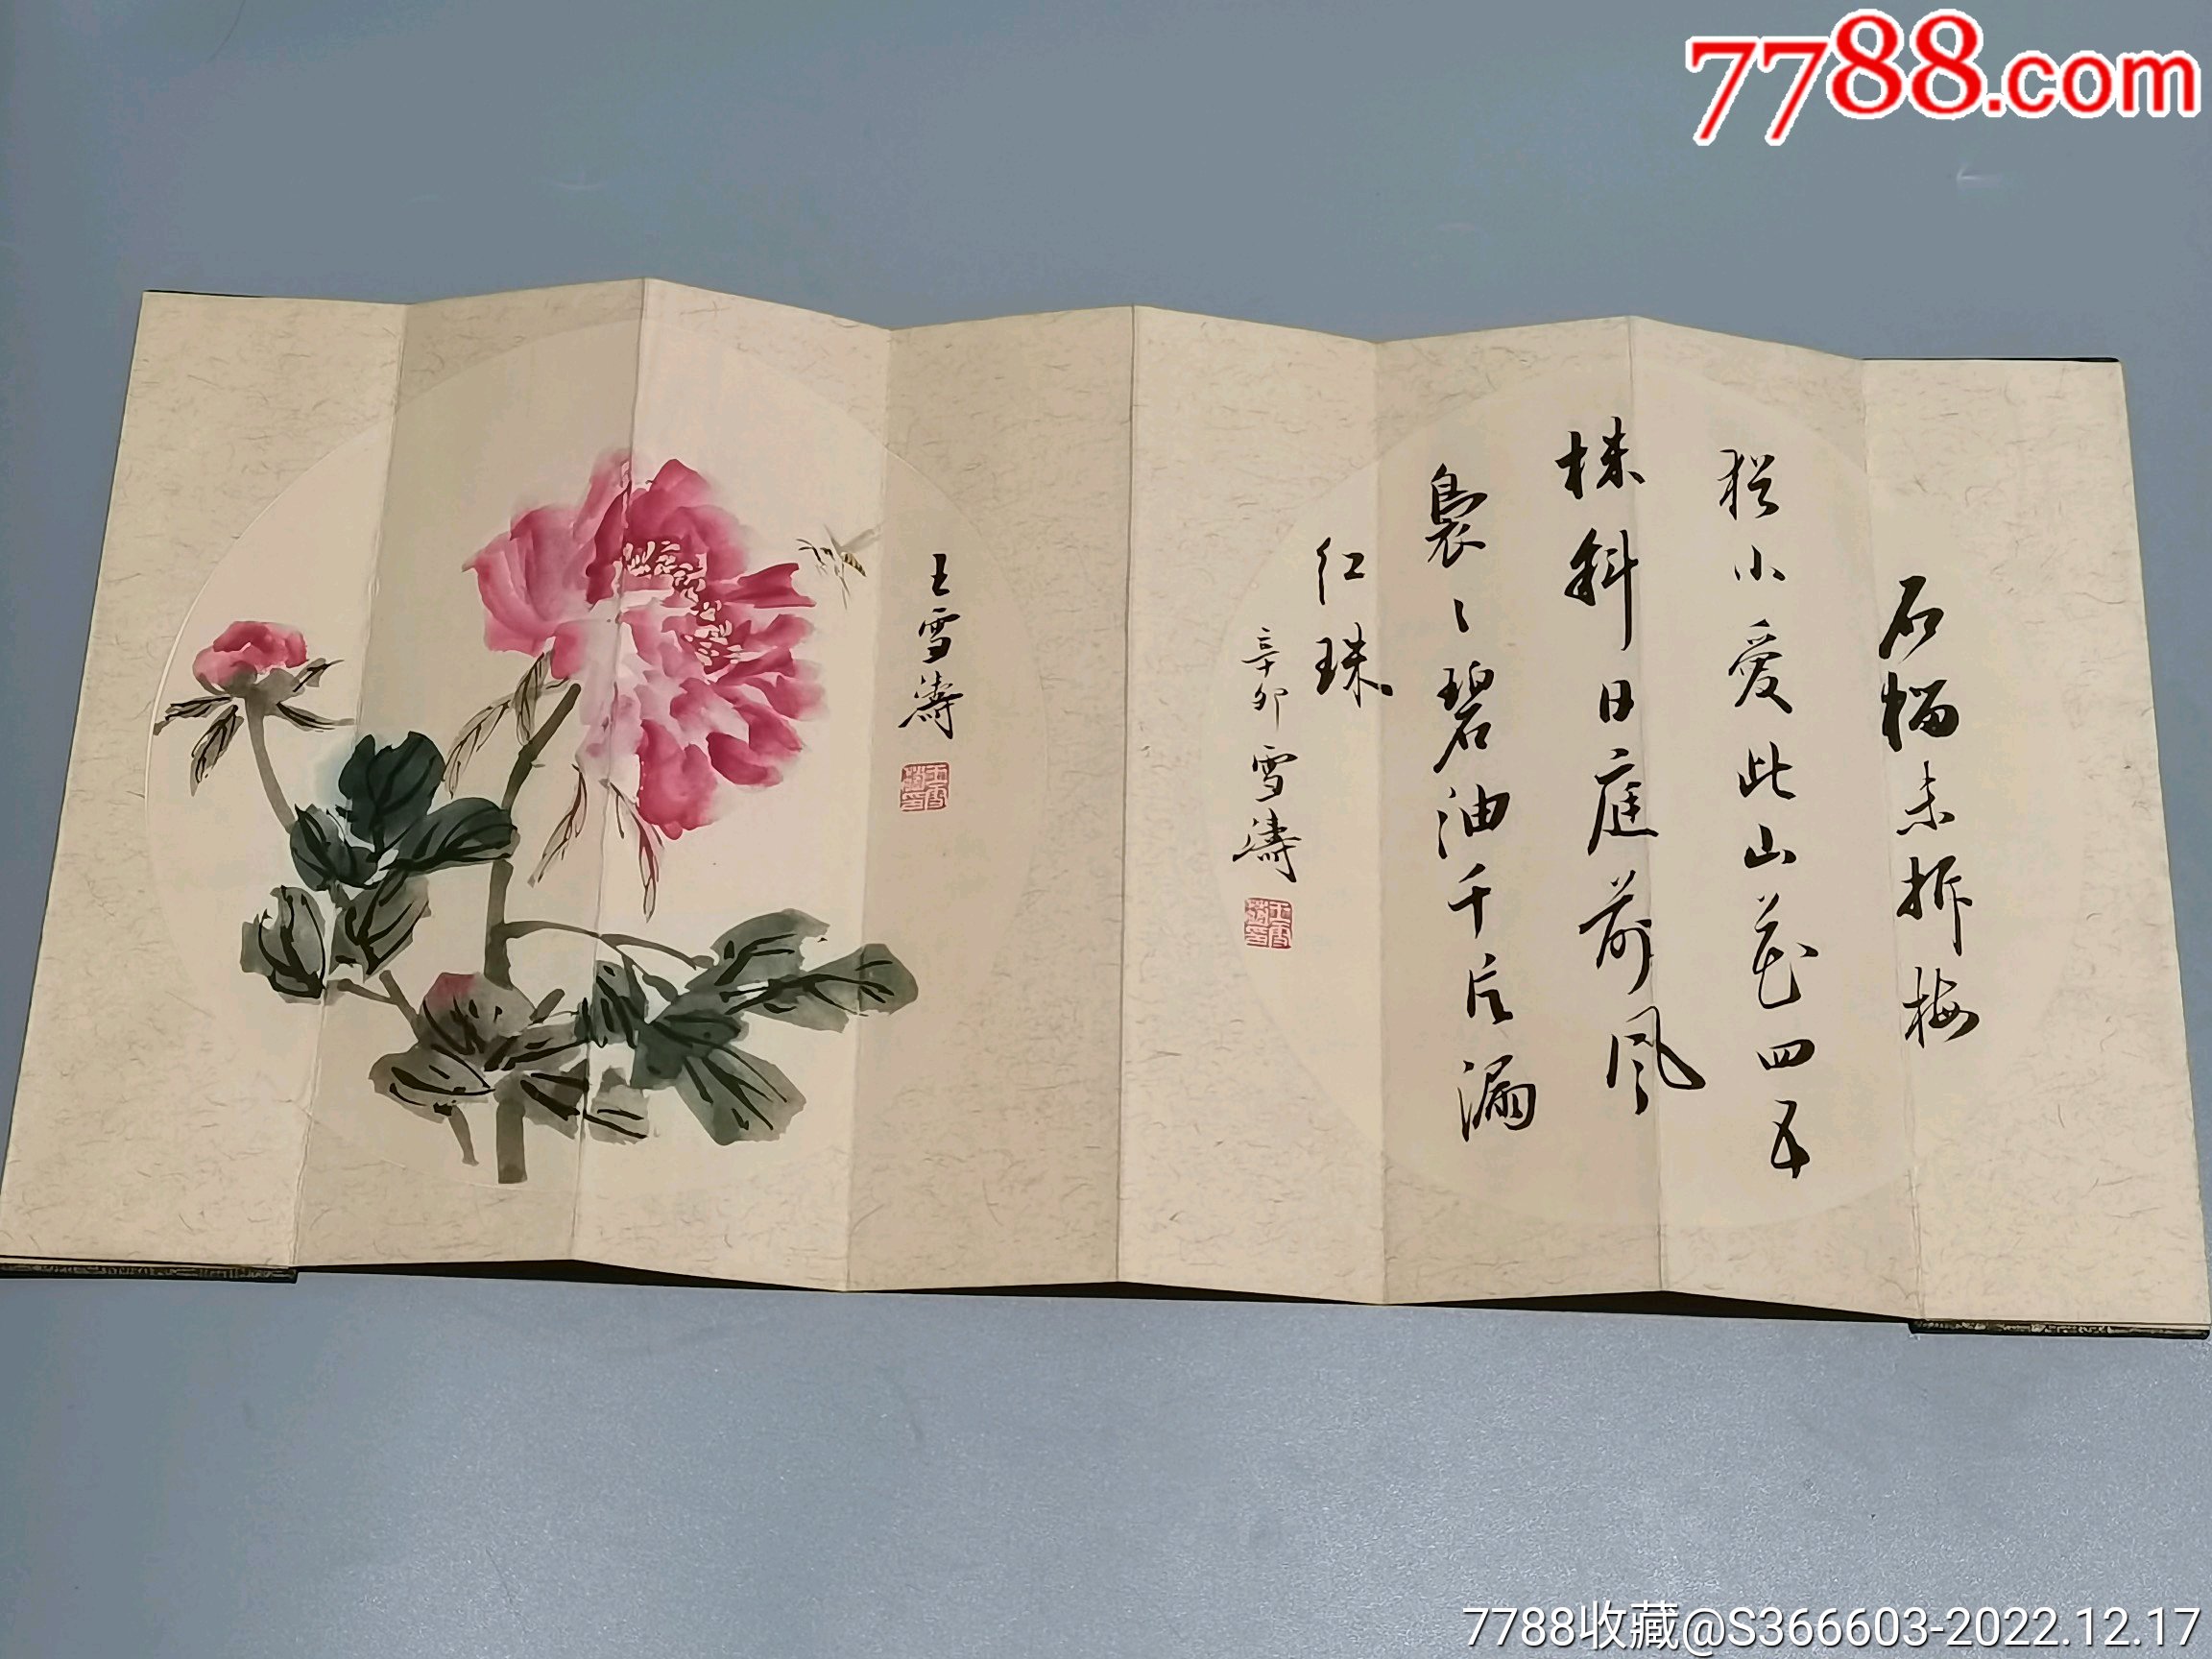 7788.com
石榴未拆梅
犹小爱此山花四五
株斜日庭前风
袅〻碧油千片漏
红珠
辛卯雪涛
王雪涛
7788收藏@S366603-2022.12.17